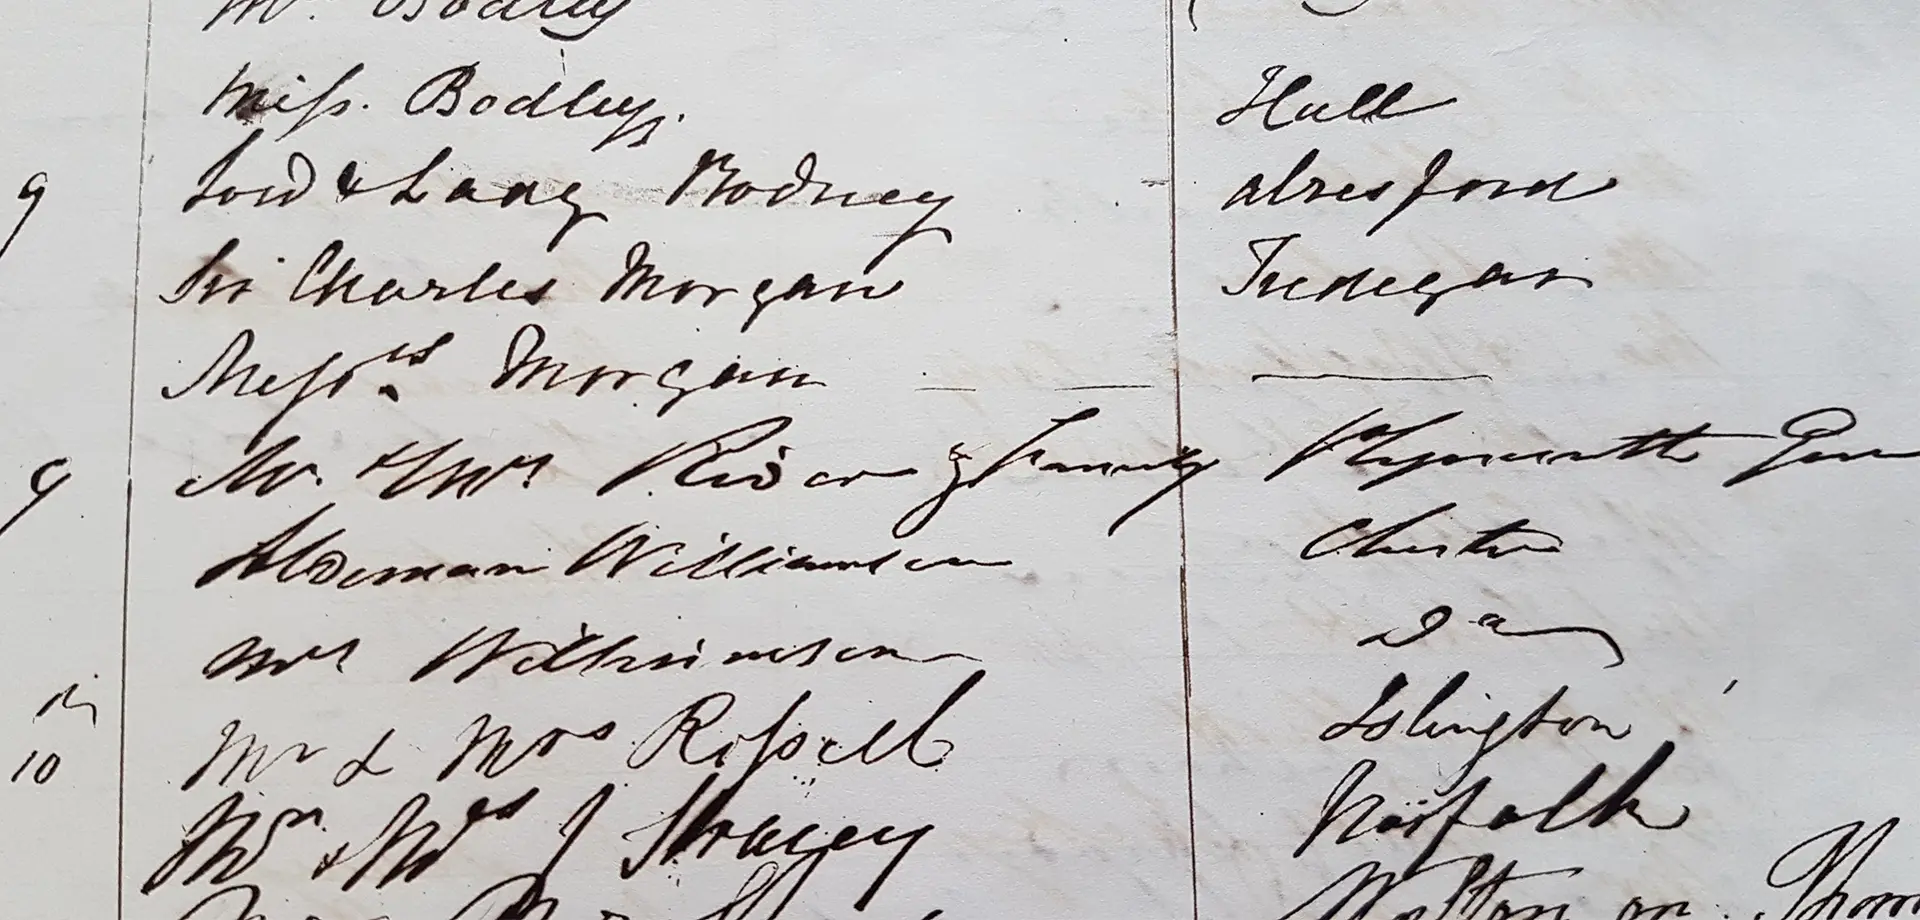 Mr. Bodley
Miss. Bodley. Hull
9 Lord & Lady Rodney alresford
Sir Charles Morgan Tredegar
Messrs. Morgan — — ——
9 Mr. & Mrs Rider & Family Plymouth
Alderman Williamson Chester
Mrs Williamson Do
10 Mr & Mrs Rossell Islington
& J Stracey Norfolk
Walton on